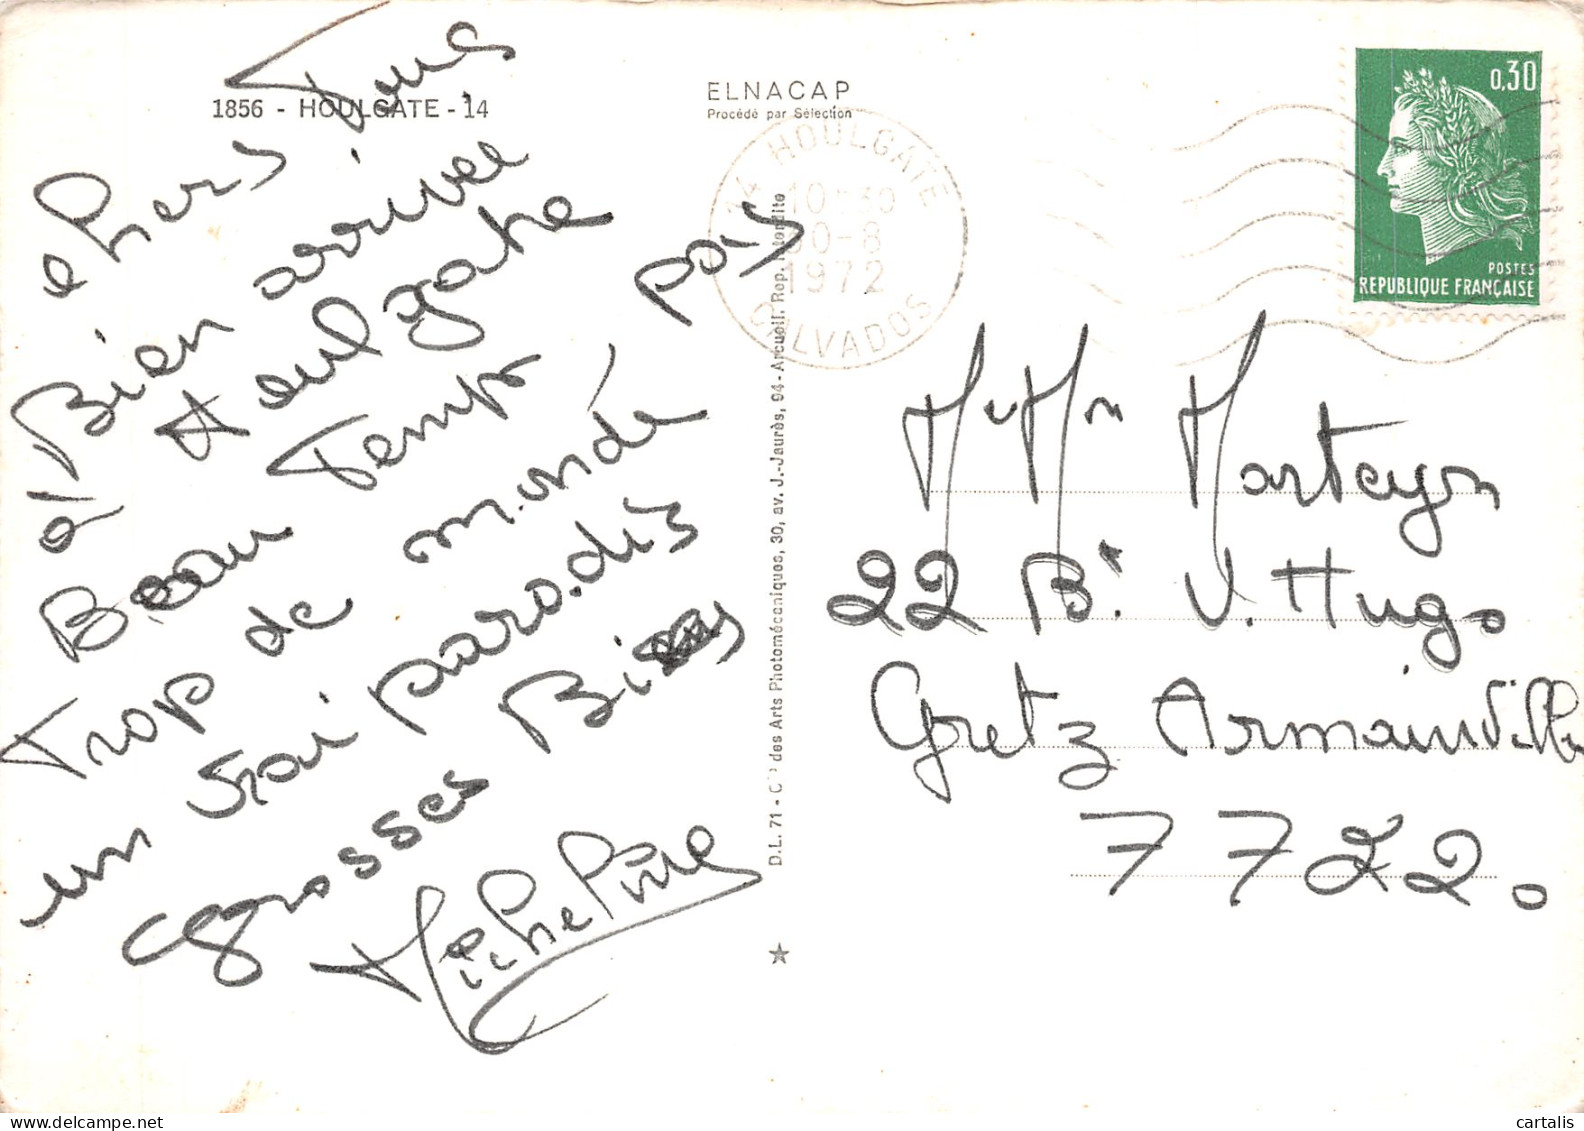 1856 - HOULGATE - 14
ELNACAP
Procédé par Sélection
chers Tous
Bien arrivee
a Houlgate
Beau Temps
Trop de monde pas
un vrai paradis
grosses Bises
Michel
14 HOULGATE
10-30
30-8
1972
CALVADOS
0,30
POSTES
REPUBLIQUE FRANÇAISE
D.L. 71 - Cie des Arts Photomécaniques, 30, av. J.-Jaurès, 94 - Arcueil. Rep. interdite
Mr Mm Marteyn
22 Bd V. Hugo
Gretz Armainville
7722.
cartalis